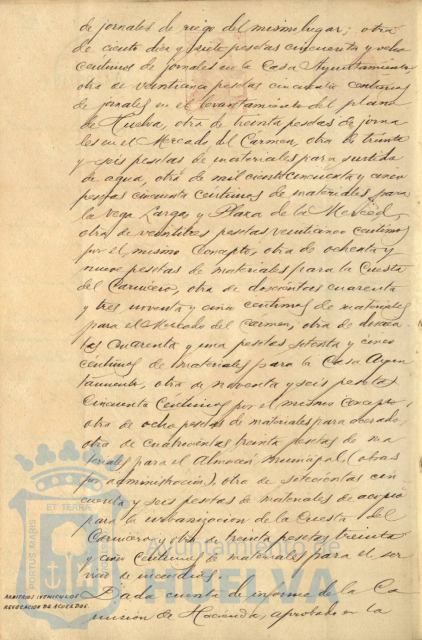 de jornales de riego del mismo lugar; otra
de ciento diez y siete pesetas cincuenta y ocho
centimos de jornales en la Casa Ayuntamiento
otra de veinticinco pesetas cincuenta centimos
de jornales en el levantamiento del plano
de Huelva, otra de treinta pesetas de jorna
les en el Mercado del Carmen, otra de treinta
y seis pesetas de materiales para surtido
de agua, otra de mil ciento cincuenta y cinco
pesetas cincuenta centimos de materiales para
la Vega Larga y Plaza de la Merced,
otra de veintitres pesetas veinticinco centimos
por el mismo concepto, otra de ochenta y
nueve pesetas de materiales para la Cuesta
del Carnicero, otra de doscientos cuarenta
y tres noventa y cinco centimos de materiales
para el Mercado del Carmen, otra de doscien
tas cuarenta y una pesetas setenta y cinco
centimos de materiales para la Casa Ayun
tamiento, otra de noventa y seis pesetas
cincuenta centimos por el mismo concepto,
otra de ocho pesetas de materiales para
otra de cuatrocientas treinta pesetas de ma
teriales para el Almacén municipal (obras
por administración), otra de setecientas cin
cuenta y seis pesetas de materiales de acopio
para la urbanizacion de la Cuesta del
Carnicero y otra de treinta pesetas treinta
y cinco centimos de materiales para el ser
vicio de incendios.
ARBITRIO VEHICULOS
REVOCACION DE ACUERDOS.
Dada cuenta de informe de la Co
mision de Hacienda, aprobado en la
PORTUS MARIS
ET TERRAE
Ayuntamiento de
HUELVA